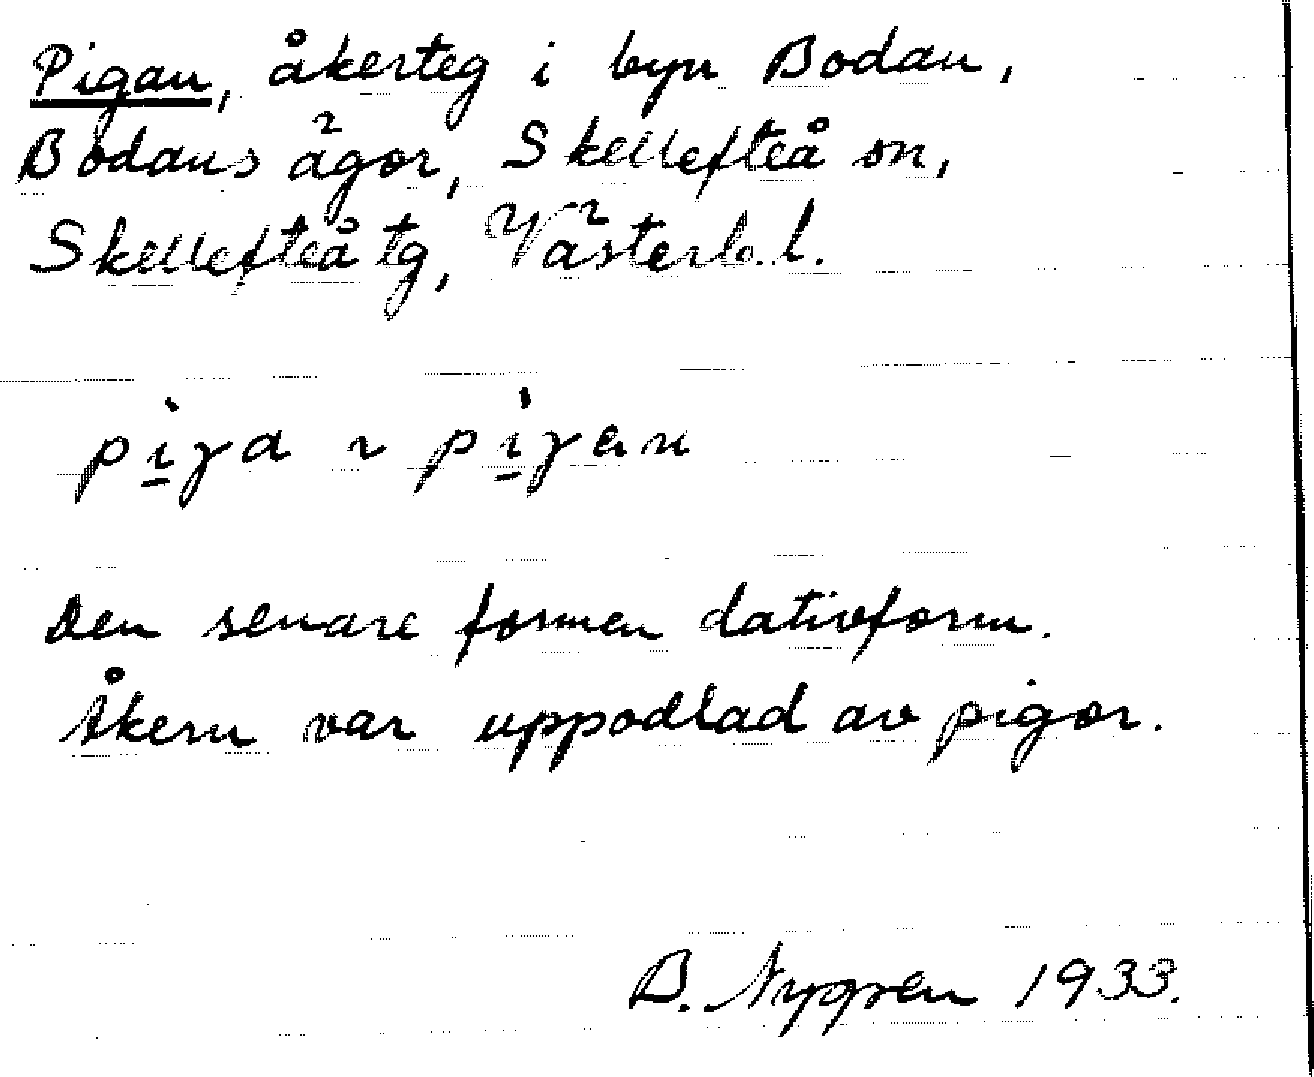 Pigan, åkerteg i byn Bodan,
Bodans ägor, Skellefteå sn,
Skellefteå tg, Västerb. l.
piga ~ pigan
Den senare formen dativform.
Åkern var uppodlad av pigor.
B. Nygren 1933.